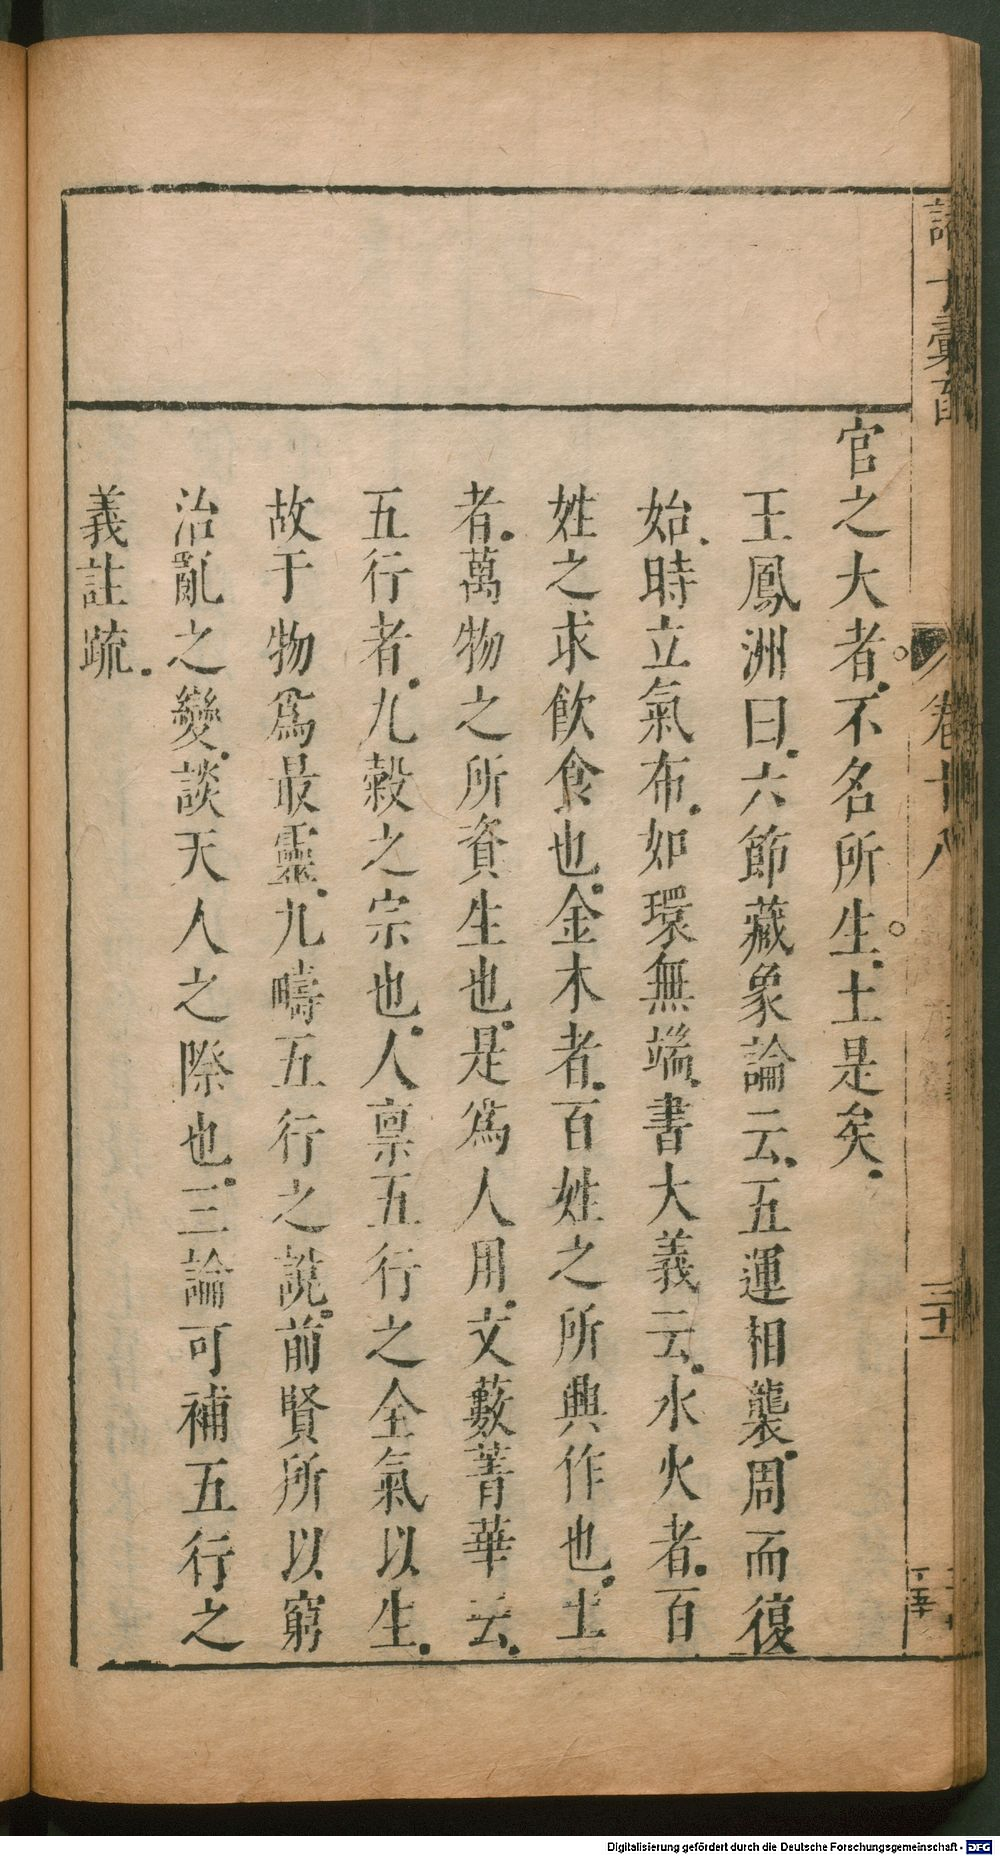 官之大者不名所生土是矣
王鳳洲曰六節藏象論云五運相襲周而復
始時立氣布如環無端書大義云水火者百
姓之求飲食也金木者百姓之所興作也土
者萬物之所資生也是為人用文藪菁華云
五行者九穀之宗也人禀五行之全氣以生
故于物為最靈九疇五行之說前賢所以窮
治亂之變談天人之際也三論可補五行之
義註疏
卷十八
Digitalisierung gefördert durch die Deutsche Forschungsgemeinschaft - DFG